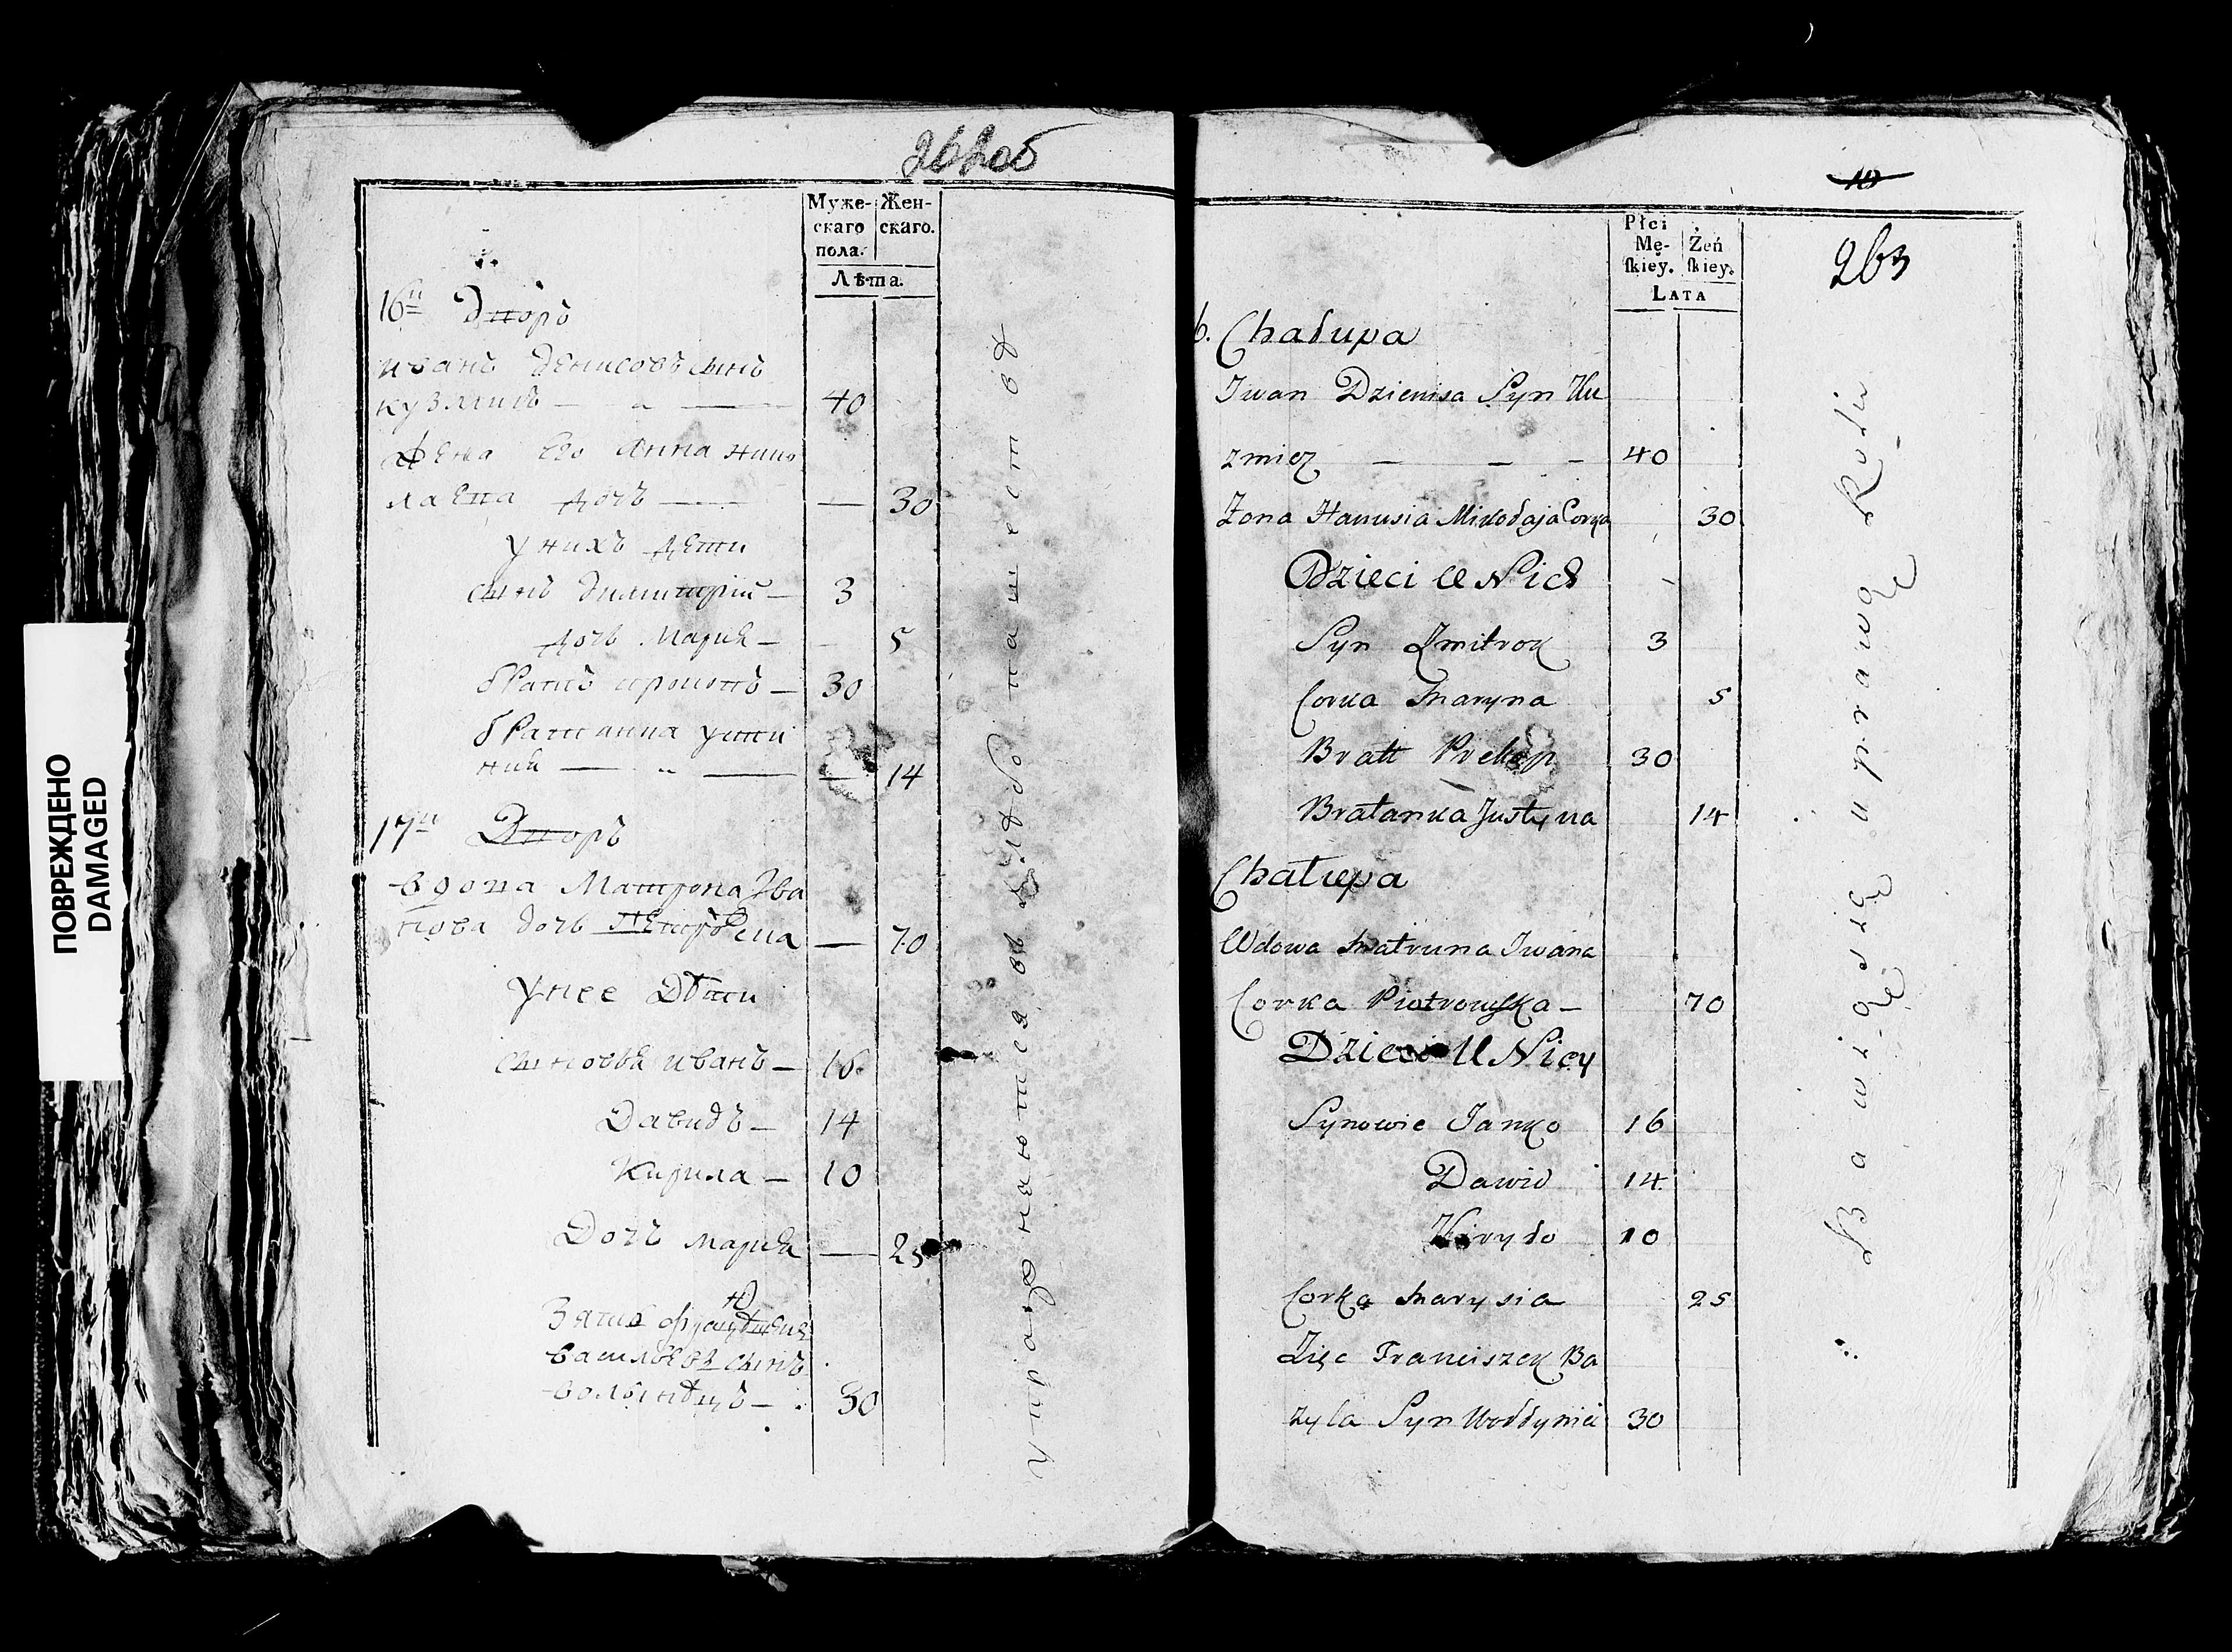 ПОВРЕЖДЕНО
DAMAGED
262об
Муже-
скаго
пола.
Жен-
скаго.
Лѣта.
16й Дворъ
иванъ денисовъ сынъ
кузмичъ — 40
жена его Анна нико
лаева дочь — — 30
у нихъ дети
сынъ димитрiй — 3
дочь Мария — 5
братъ прокопъ — 30
братанка усти
ния — — 14
17й Дворъ
вдова Матрона Ива
нова дочь — 70
у нее Дѣти
сыновья иванъ — 16
Давидъ — 14
Кирила — 10
Дочь мария — 25
Зять
васильевъ сынъ
30
упражняются въ хлѣбопашествѣ
10
263
Płci
Mę-
ſkiey.
Żeń
ſkiey.
LATA
6. Chałupa
Iwan Dzienisa Syn Ku
zmicz — — — 40
Zona Hanusia Mikołaja Corka 30
Dzieci U Nich
Syn Zmitrok 3
Corka Maryna 5
Bratt Prokop 30
Bratanka Justyna 14
Chałupa
Wdowa Matruna Iwana
Corka Piotrowska — 70
Dzieci U Niey
Synowie Janko 16
Dawid 14
Kiryło 10
Corka Marysia 25
Zięc Franciszek Ba
zyla Syn Wołłyniec 30
Bawią się uprawą Roli